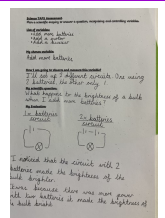 Science CAPE Assessment
Plan a scientific enquiry to answer a question, recognising and controlling variables.
List of variables
• Add more batteries
• Add a motor
• Add a buzzer
My chosen variable:
Add more batteries
How I am going to observe and measure this variable?
I'll set up 2 different circuits. One using
2 batteries, the other only 1.
My scientific question:
What happens to the brightness of a bulb
when I add more batteries?
My Evaluation:
1x batteries
circuit
2x batteries
circuit
I noticed that the circuit with 2
batteries made the brightness of the
bulb brighter.
because there was more power
with two batteries it made the brightness of
bulb bright